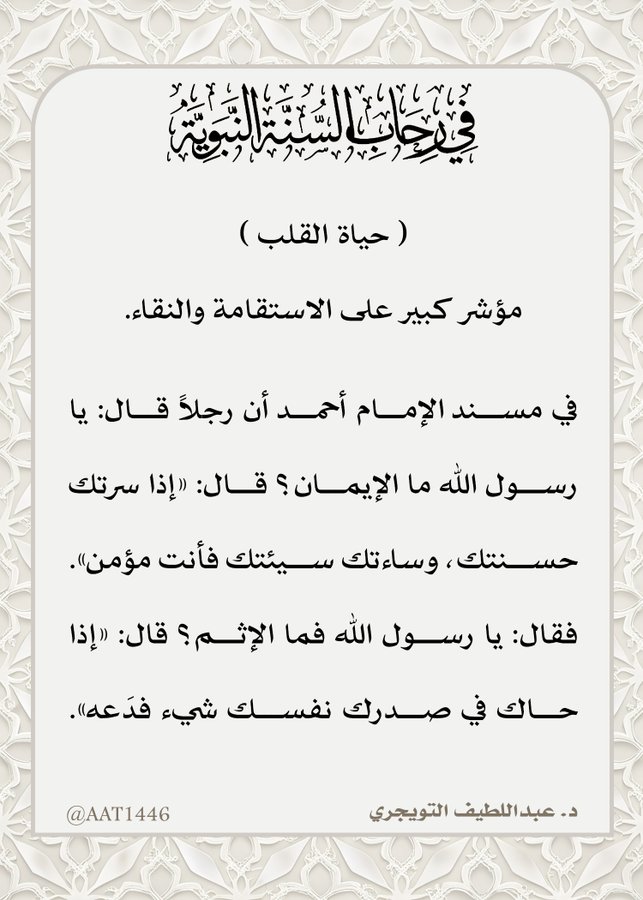 في رِحَابِ السُّنَّةِ النَّبَوِيَّةِ
( حياة القلب )
مؤشر كبير على الاستقامة والنقاء.
في مســـند الإمـــام أحمـــد أن رجلاً قـــال: يا
رســـول الله ما الإيمـــان؟ قـــال: «إذا سرتك
حســـنتك، وساءتك ســـيئتك فأنت مؤمن».
فقال: يا رســـول الله فما الإثـــم؟ قال: «إذا
حـــاك في صـــدرك نفســـك شيء فدَعه».
د. عبداللطيف التويجري
@AAT1446